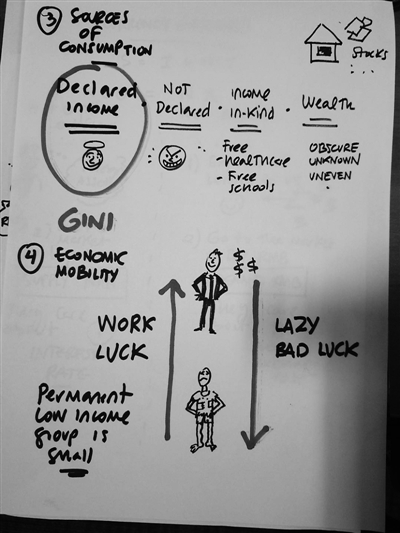 3 SOURCES
OF
CONSUMPTION
STOCKS
Declared
income
NOT
Declared
INCOME
IN-KIND
WEALTH
Free
- healthcare
- Free
schools
OBSCURE
UNKNOWN
UNEVEN
GINI
4 ECONOMIC
MOBILITY
$
$ $
WORK
LUCK
LAZY
BAD LUCK
Permanent
low income
group is
small